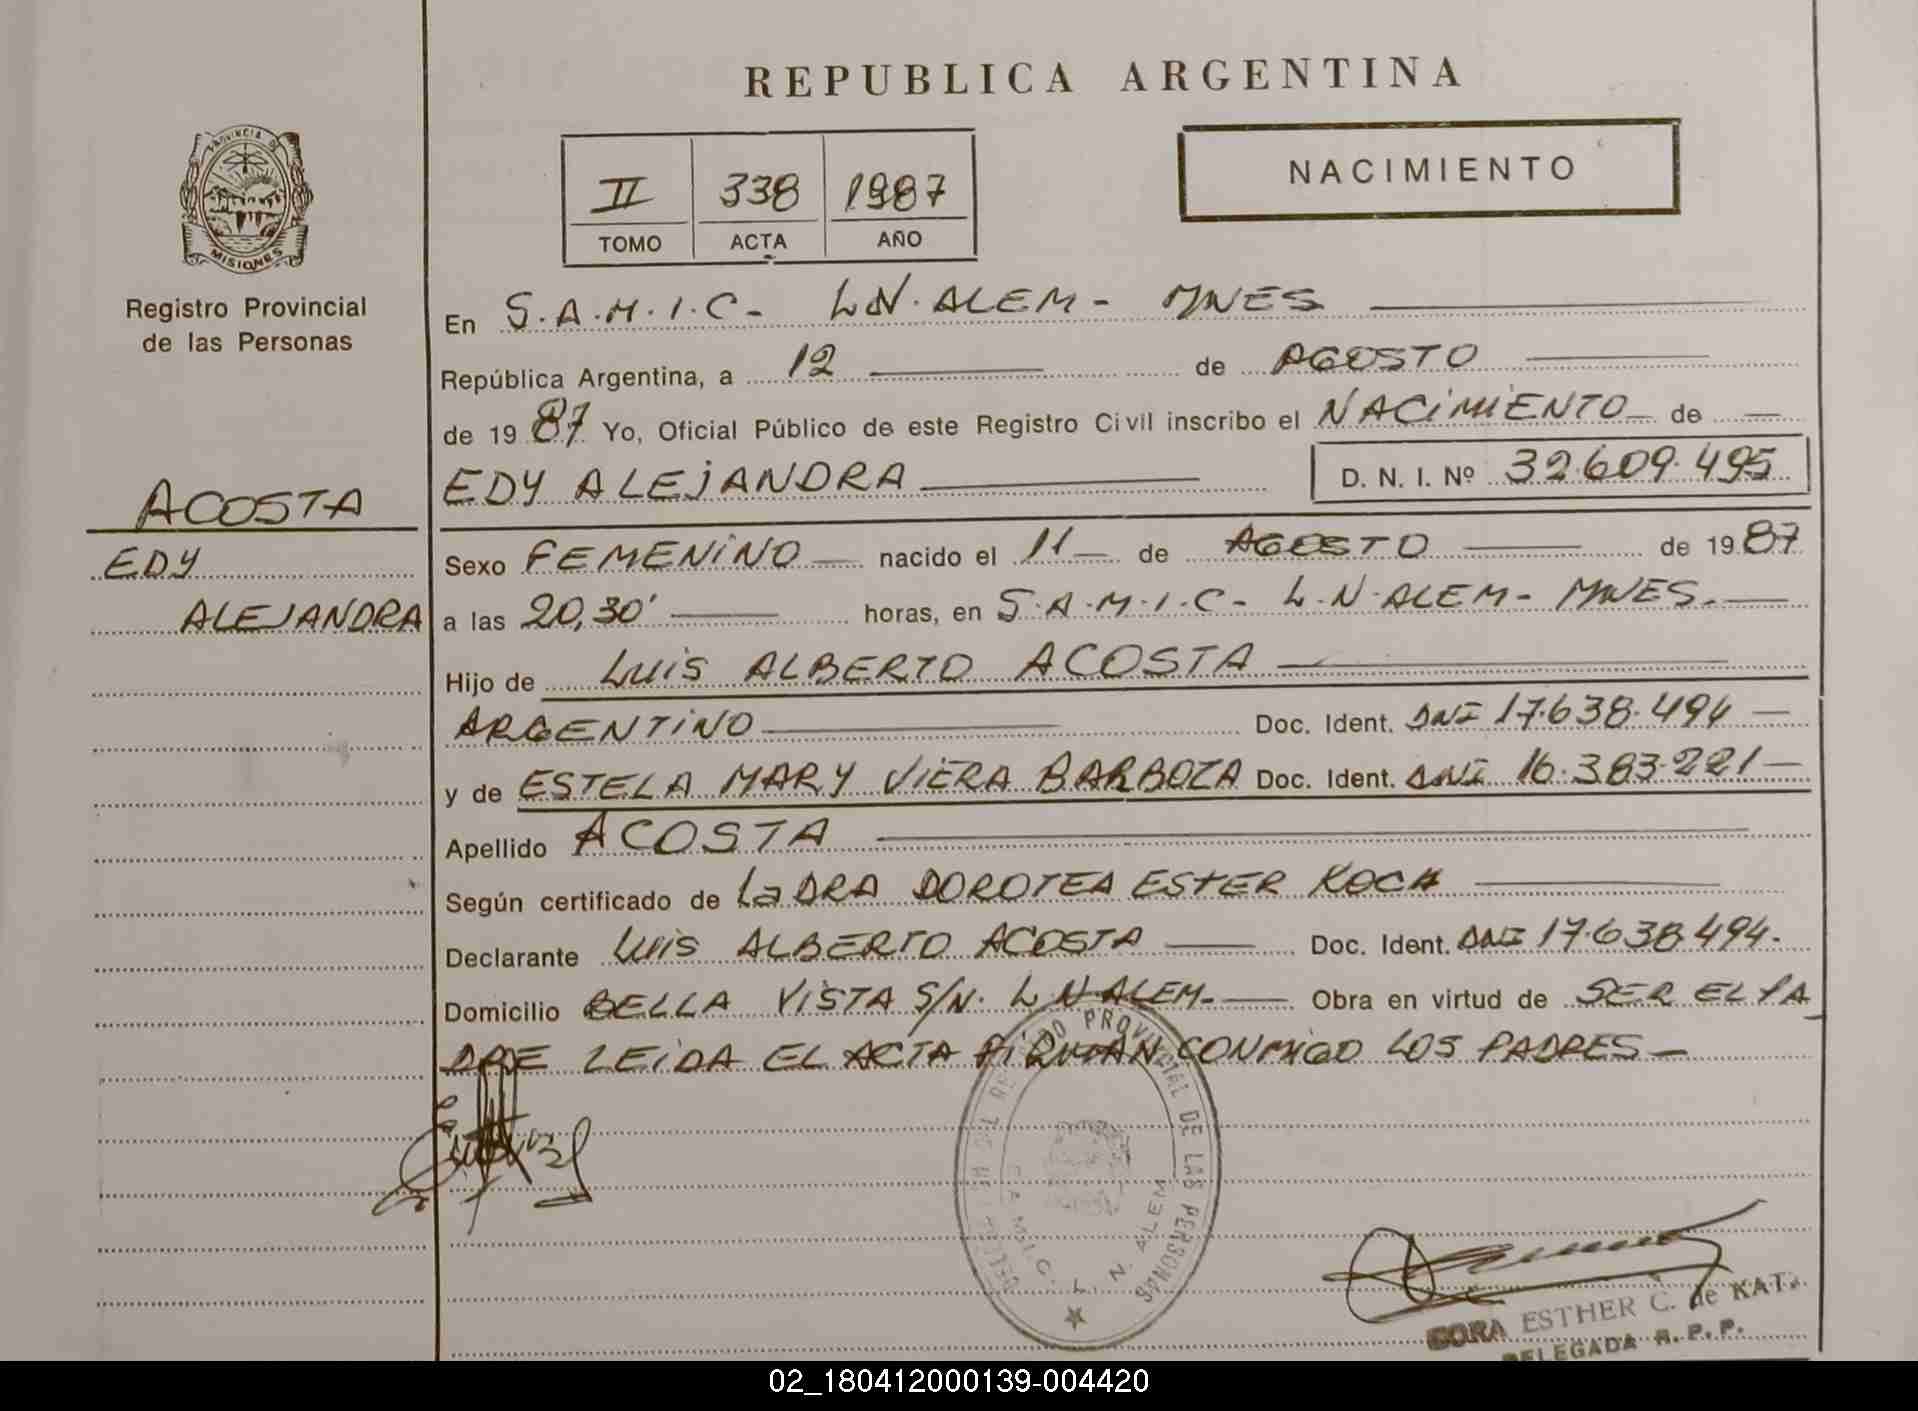 REPUBLICA ARGENTINA
PROVINCIA DE
MISIONES
Registro Provincial
de las Personas
II 338 1987
TOMO ACTA AÑO
NACIMIENTO
En S.A.M.I.C- L.N.ALEM- MNES
República Argentina, a 12 de AGOSTO
de 1987 Yo, Oficial Público de este Registro Civil inscribo el NACIMIENTO de
EDY ALEJANDRA D. N. I. Nº 32.609.495
ACOSTA
EDY
ALEJANDRA
Sexo FEMENINO nacido el 11 de AGOSTO de 1987
a las 20,30' horas, en S.A.M.I.C- L.N.ALEM- MNES.
Hijo de LUIS ALBERTO ACOSTA
ARGENTINO Doc. Ident. DNI 17.638.494
y de ESTELA MARY VIERA BARBOZA Doc. Ident. DNI 16.383.221
Apellido ACOSTA
Según certificado de La DRA DOROTEA ESTER KOCH
Declarante LUIS ALBERTO ACOSTA Doc. Ident. DNI 17.638.494.
Domicilio BELLA VISTA S/N. L.N.ALEM. Obra en virtud de SER EL PA
DRE LEIDA EL ACTA FIRMAN CONMIGO LOS PADRES
PROVINCIAL DE LAS PERSONAS
S.A.M.I.C. L. N. ALEM
CORA ESTHER C. de KAT.
DELEGADA R. P. P.
02_180412000139-004420